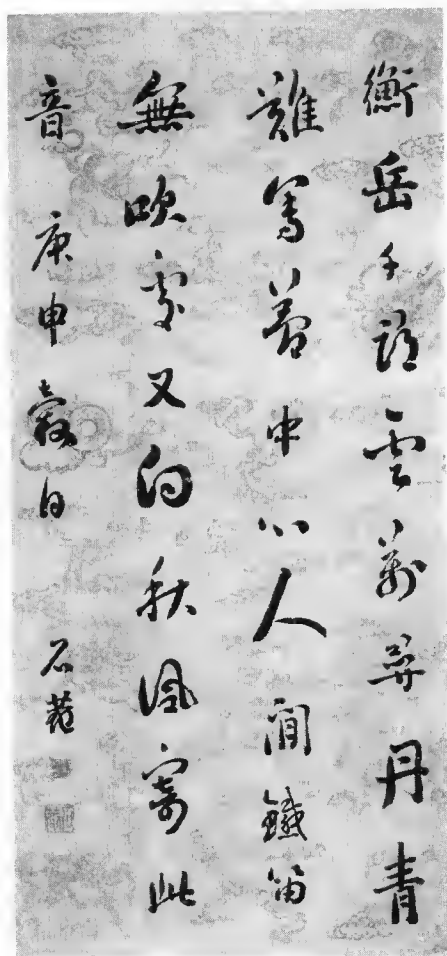 衡岳千雲萬尋丹青
難寫夢中心人間鐵笛
無吹處又向秋風寄此
音 庚申穀日 石菴